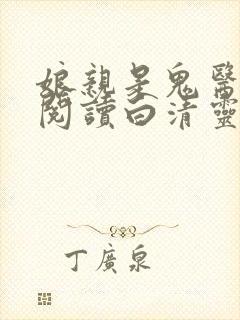 娘親是鬼醫
閱讀白清靈
丁廣泉